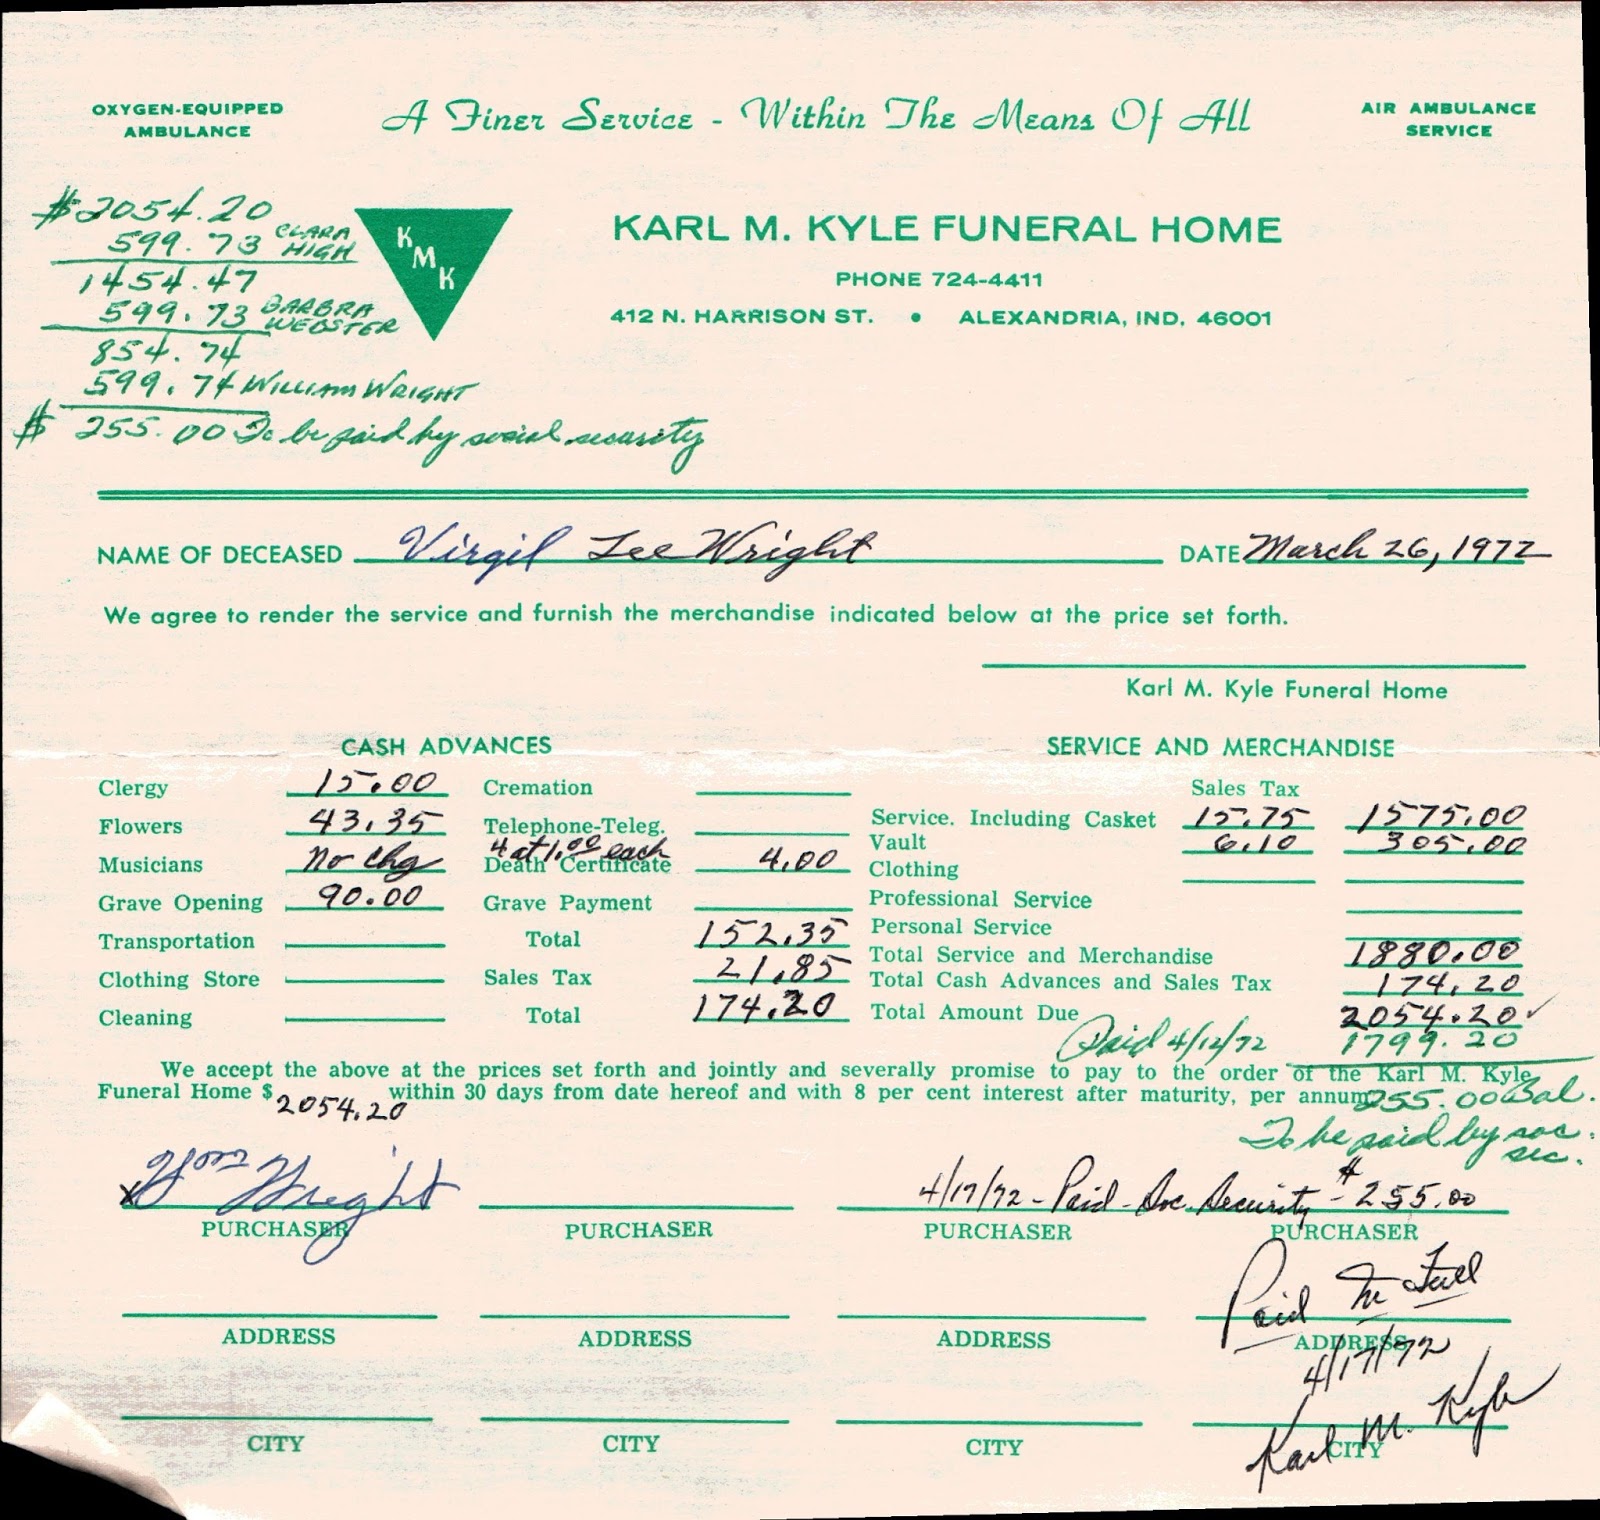 OXYGEN-EQUIPPED
AMBULANCE
A Finer Service - Within The Means Of All
AIR AMBULANCE
SERVICE
$2054.20
599.73 CLARA HIGH
1454.47
599.73 BARBRA WEBSTER
854.74
599.74 WILLIAM WRIGHT
$ 255.00 To be paid by social security
KMK
KARL M. KYLE FUNERAL HOME
PHONE 724-4411
412 N. HARRISON ST. • ALEXANDRIA, IND. 46001
NAME OF DECEASED Virgil Lee Wright DATE March 26, 1972
We agree to render the service and furnish the merchandise indicated below at the price set forth.
Karl M. Kyle Funeral Home
CASH ADVANCES
Clergy 15.00
Flowers 43.35
Musicians No Chg
Grave Opening 90.00
Transportation
Clothing Store
Cleaning
Cremation
Telephone-Teleg.
4 at 1.00 each
Death Certificate 4.00
Grave Payment
Total 152.35
Sales Tax 21.85
Total 174.20
SERVICE AND MERCHANDISE
Sales Tax
Service. Including Casket 15.75 1575.00
Vault 6.10 305.00
Clothing
Professional Service
Personal Service
Total Service and Merchandise 1880.00
Total Cash Advances and Sales Tax 174.20
Total Amount Due 2054.20 ✓
Paid 4/12/72 1799.20
We accept the above at the prices set forth and jointly and severally promise to pay to the order of the Karl M. Kyle
Funeral Home $ 2054.20 within 30 days from date hereof and with 8 per cent interest after maturity, per annum
255.00 Bal.
To be paid by soc.
sec.
x Wm Wright
4/17/72 - Paid - Soc. Security - $255.00
PURCHASER PURCHASER PURCHASER PURCHASER
Paid In Full
ADDRESS ADDRESS ADDRESS ADDRESS
4/17/72
Karl M. Kyle
CITY CITY CITY CITY